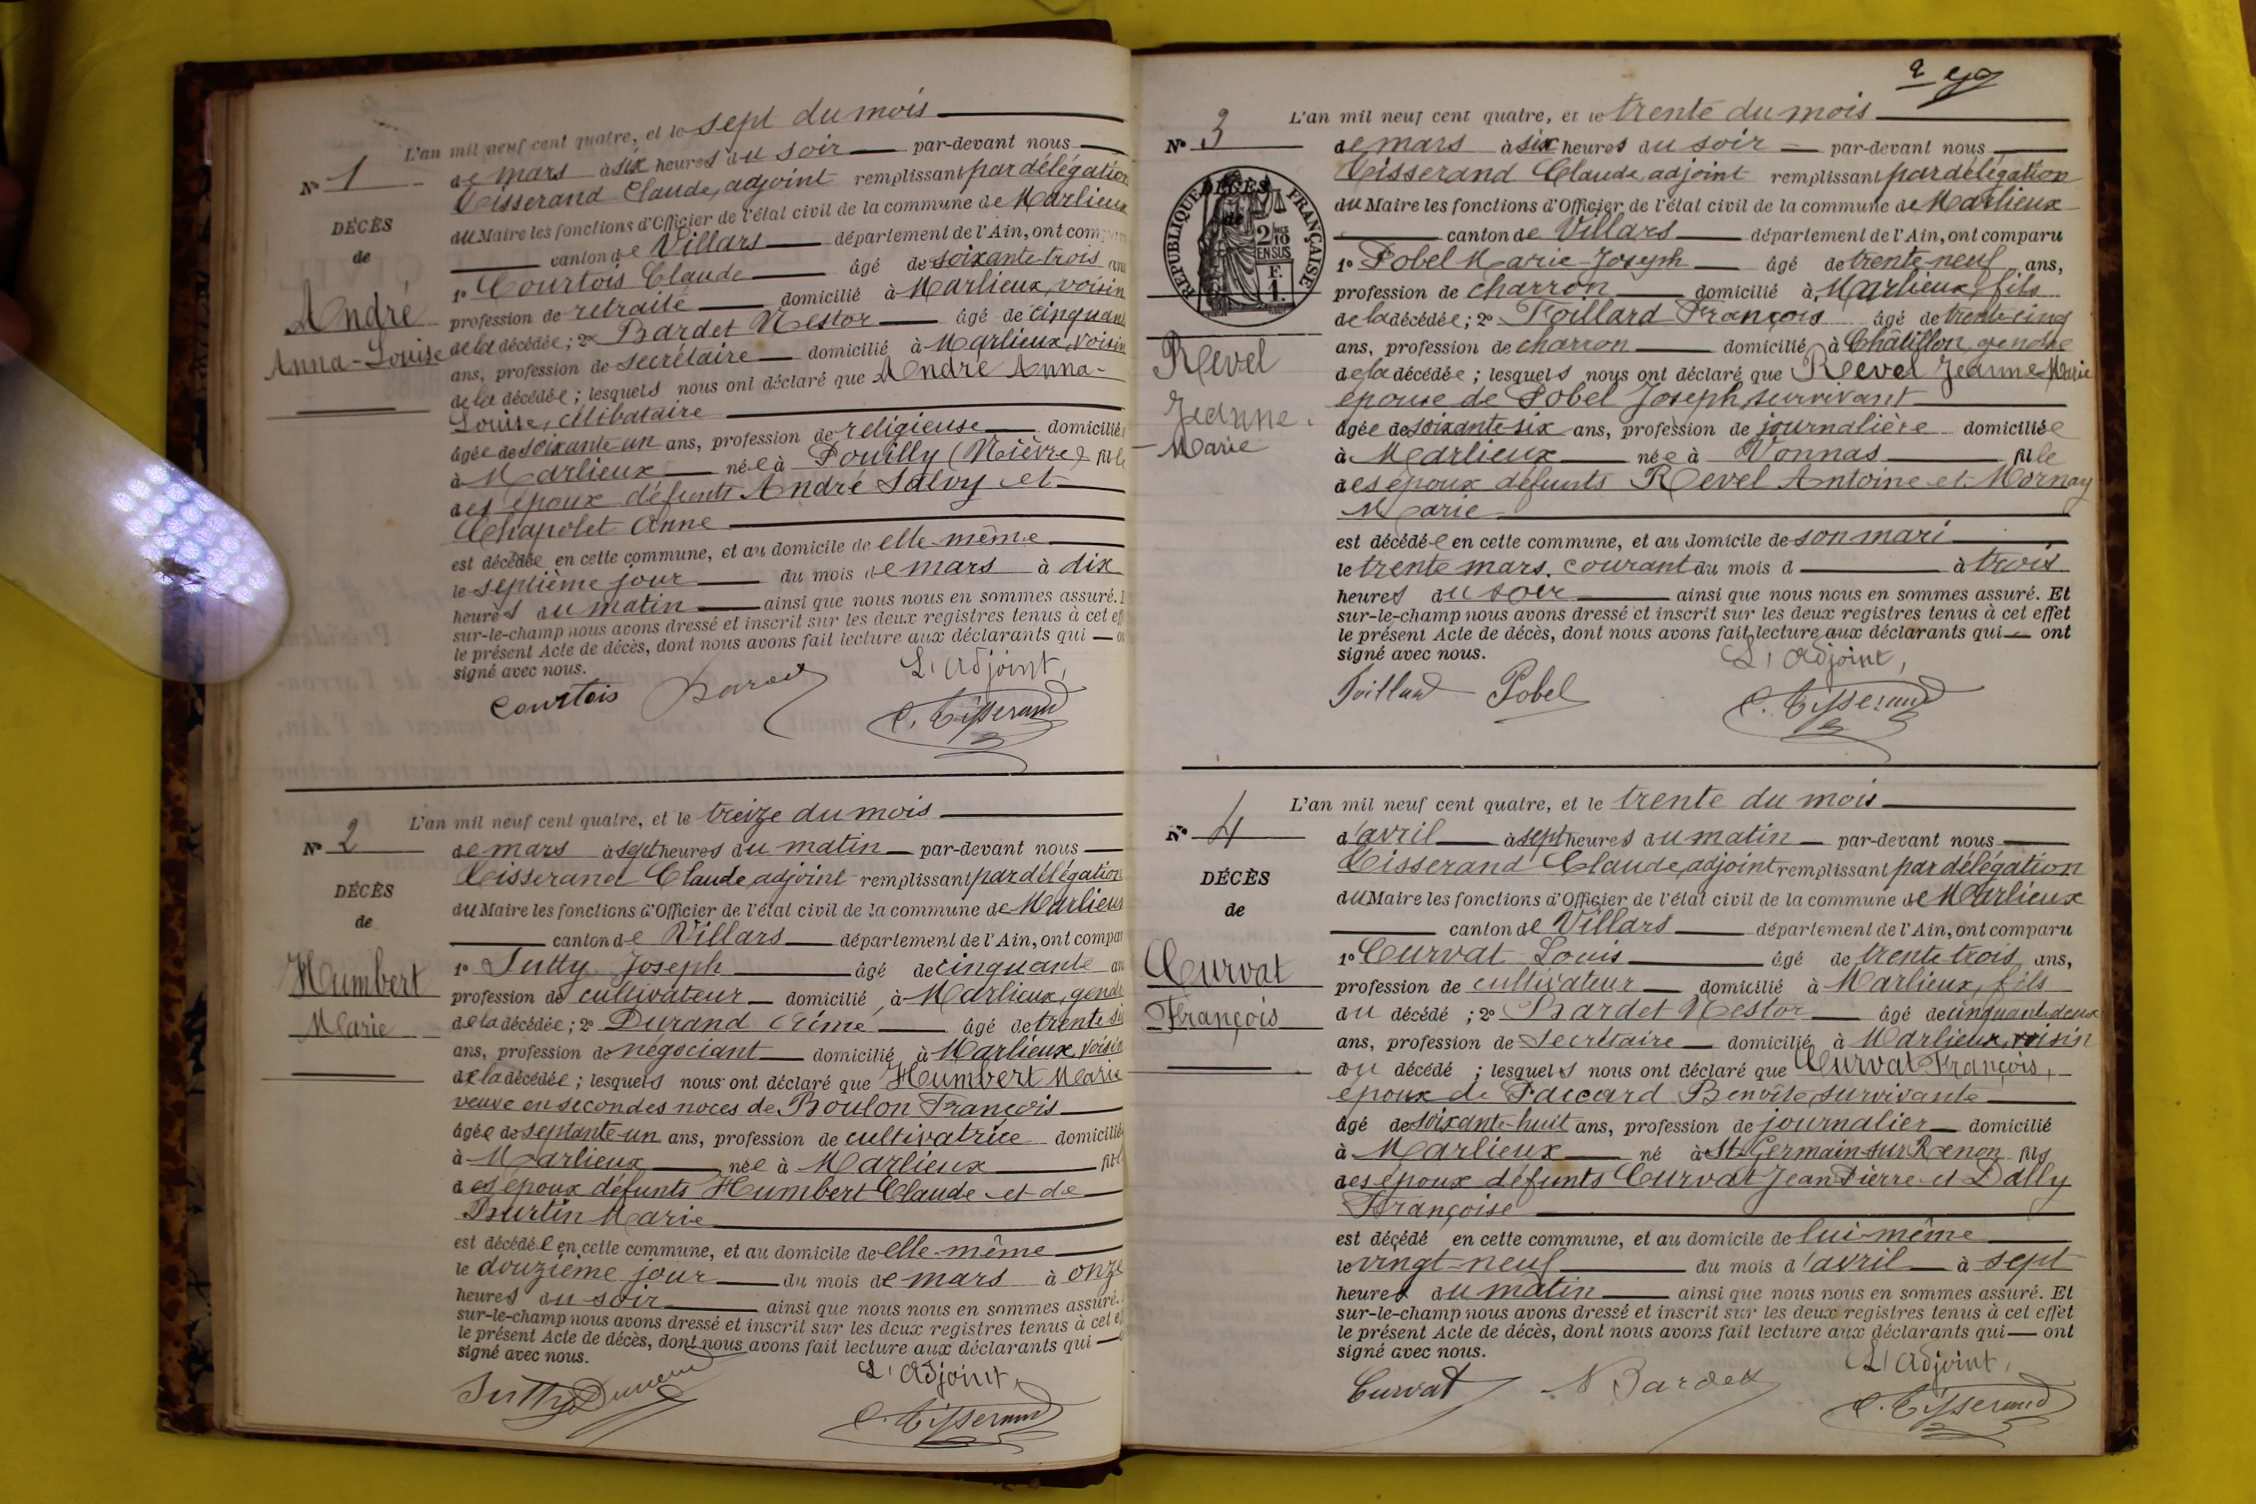 L'an mil neuf cent quatre, et le sept du mois
N° 1
de mars à six heures du soir par-devant nous
Tisserand Claude, adjoint remplissant par délégation
DÉCÈS
du Maire les fonctions d'Officier de l'état civil de la commune de Marlieux
de
canton de Villars département de l'Ain, ont comparu
1° Courtois Claude âgé de soixante-trois ans
André
profession de retraité domicilié à Marlieux, voisin
Anna-Louise
de la décédée; 2° Bardet Nestor âgé de cinquante
ans, profession de secrétaire domicilié à Marlieux, voisin
de la décédée; lesquels nous ont déclaré que André Anna-
Louise, célibataire
âgée de soixante-un ans, profession de religieuse domiciliée
à Marlieux née à Pouilly (Nièvre) fille
des époux défunts André Salvy et
Chapolet Anne
est décédée en cette commune, et au domicile de elle-même
le septième jour du mois de mars à dix
heures du matin ainsi que nous nous en sommes assuré.
sur-le-champ nous avons dressé et inscrit sur les deux registres tenus à cet eff
le présent Acte de décès, dont nous avons fait lecture aux déclarants qui
signé avec nous.
L'Adjoint,
Courtois Bardet
C. Tisserand
L'an mil neuf cent quatre, et le treize du mois
N° 2
de mars à sept heures du matin par-devant nous
Tisserand Claude, adjoint remplissant par délégation
DÉCÈS
du Maire les fonctions d'Officier de l'état civil de la commune de Marlieux
de
canton de Villars département de l'Ain, ont compar
1° Jutty Joseph âgé de cinquante an
Humbert
profession de cultivateur domicilié à Marlieux, gendre
Marie
de la décédée; 2° Durand âgé de trente-six
ans, profession de négociant domicilié à Marlieux, voisin
de la décédée; lesquels nous ont déclaré que Humbert Marie
veuve en secondes noces de Boulon François
âgée de septante-un ans, profession de cultivatrice domiciliée
à Marlieux née à Marlieux fille
des époux défunts Humbert Claude et de
Burtin Marie
est décédée en cette commune, et au domicile de elle-même
le douzième jour du mois de mars à onze
heures du soir ainsi que nous nous en sommes assuré.
sur-le-champ nous avons dressé et inscrit sur les deux registres tenus à cet e
le présent Acte de décès, dont nous avons fait lecture aux déclarants qui
signé avec nous.
L'Adjoint,
Jutty Durand
C. Tisserand
2
L'an mil neuf cent quatre, et le trente du mois
N° 3
de mars à six heures du soir par-devant nous
Tisserand Claude, adjoint remplissant par délégation
DÉCÈS
de
RÉPUBLIQUE FRANÇAISE
2/10 EN SUS
1 F.
du Maire les fonctions d'Officier de l'état civil de la commune de Marlieux
canton de Villars département de l'Ain, ont comparu
1° Pobel Marie-Joseph âgé de trente-neuf ans,
profession de charron domicilié à Marlieux, fils
de la décédée; 2° Foillard François âgé de trente-cinq
Revel
ans, profession de charron domicilié à Châtillon, gendre
de la décédée; lesquels nous ont déclaré que Revel Jeanne Marie
Jeanne-
épouse de Pobel Joseph, survivant
Marie
âgée de soixante-six ans, profession de journalière domiciliée
à Marlieux née à Vonnas fille
des époux défunts Revel Antoine et Mornay
Marie
est décédée en cette commune, et au domicile de son mari
le trente mars courant du mois d à trois
heures du soir ainsi que nous nous en sommes assuré. Et
sur-le-champ nous avons dressé et inscrit sur les deux registres tenus à cet effet
le présent Acte de décès, dont nous avons fait lecture aux déclarants qui ont
signé avec nous.
L'Adjoint,
Foillard Pobel
C. Tisserand
L'an mil neuf cent quatre, et le trente du mois
N° 4
d'avril à sept heures du matin par-devant nous
Tisserand Claude, adjoint remplissant par délégation
DÉCÈS
du Maire les fonctions d'Officier de l'état civil de la commune de Marlieux
de
canton de Villars département de l'Ain, ont comparu
1° Curvat Louis âgé de trente-trois ans,
Curvat
profession de cultivateur domicilié à Marlieux, fils
François
du décédé; 2° Bardet Nestor âgé de cinquante-deux
ans, profession de secrétaire domicilié à Marlieux, voisin
du décédé; lesquels nous ont déclaré que Curvat François,
époux de Paccard Benoîte, survivante
âgé de soixante-huit ans, profession de journalier domicilié
à Marlieux né à St Germain-sur-Renon fils
des époux défunts Curvat Jean Pierre et Dally
Françoise
est décédé en cette commune, et au domicile de lui-même
le vingt-neuf du mois d'avril à sept
heures du matin ainsi que nous nous en sommes assuré. Et
sur-le-champ nous avons dressé et inscrit sur les deux registres tenus à cet effet
le présent Acte de décès, dont nous avons fait lecture aux déclarants qui ont
signé avec nous.
L'Adjoint,
Curvat N Bardet
C. Tisserand